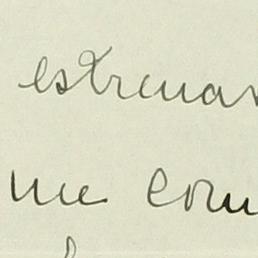 estrenar
me com